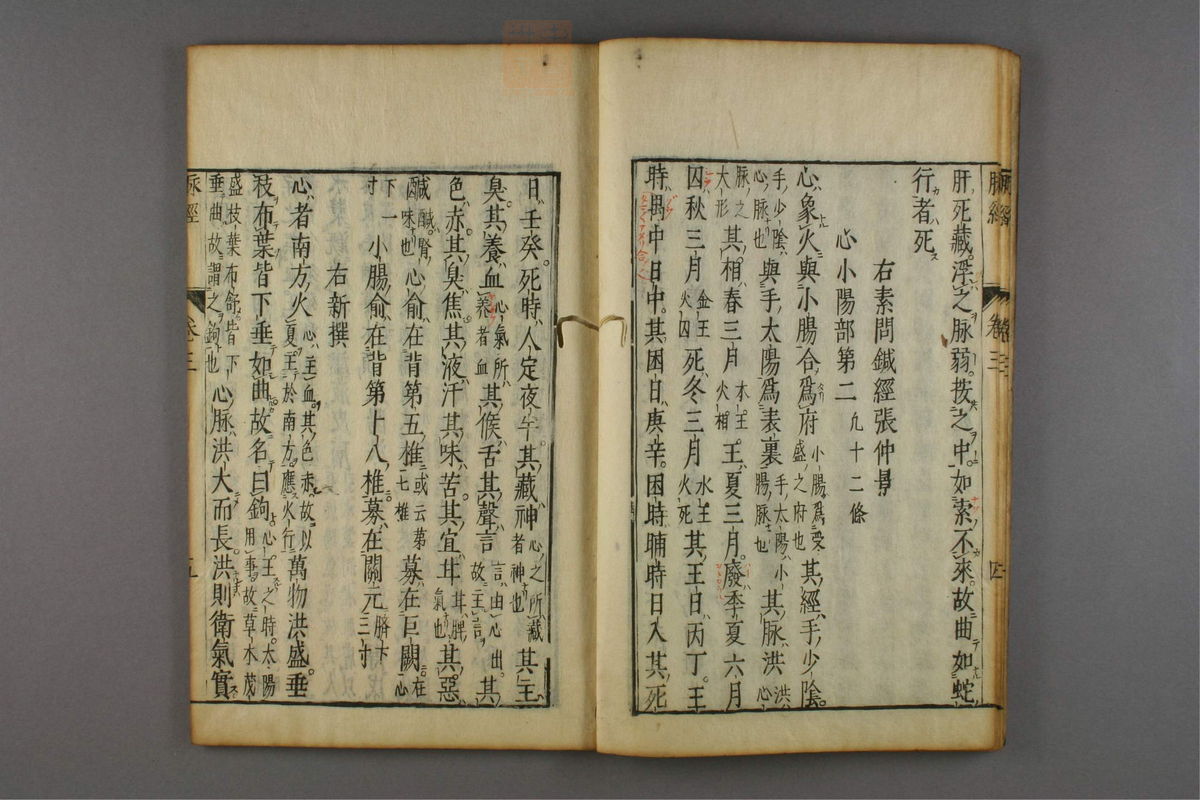 脉經 卷三 四
肝死藏浮之脉弱按之中如索不來故曲如蛇
行者死
右素問鍼經張仲景
心小陽部第二 九十二條
心象火與小腸合爲府 小腸爲受盛之府也 其經手少陰
手少陰心脉也 與手太陽爲表裏 手太陽小腸脉也 其脉洪 洪心
脉之大形 其相春三月 木王火相 王夏三月廢季夏六月
囚秋三月 金王火囚 死冬三月 水王火死 其王日丙丁王
時禺中日中其困日庚辛困時晡時日入其死
日壬癸死時人定夜午其藏神 心之所藏者神也 其主
臭其養血 心氣所養者血 其候舌其聲言 言由心出故主言 其
色赤其臭焦其液汗其味苦其宜 其惡
鹹 鹹腎味也 心俞在背第五椎 或云第七椎 募在巨闕 在心
下一寸 小腸俞在背第十八椎募在關元 臍下三寸
右新撰
心者南方火 心主血其色赤故以夏王於南方應火行 萬物洪盛垂
枝布葉皆下垂如曲故名曰鉤 心王之時太陽用事故草木茂
盛枝葉布舒皆下垂曲故謂之鉤也 心脉洪大而長洪則衛氣實
脉經 卷三 五